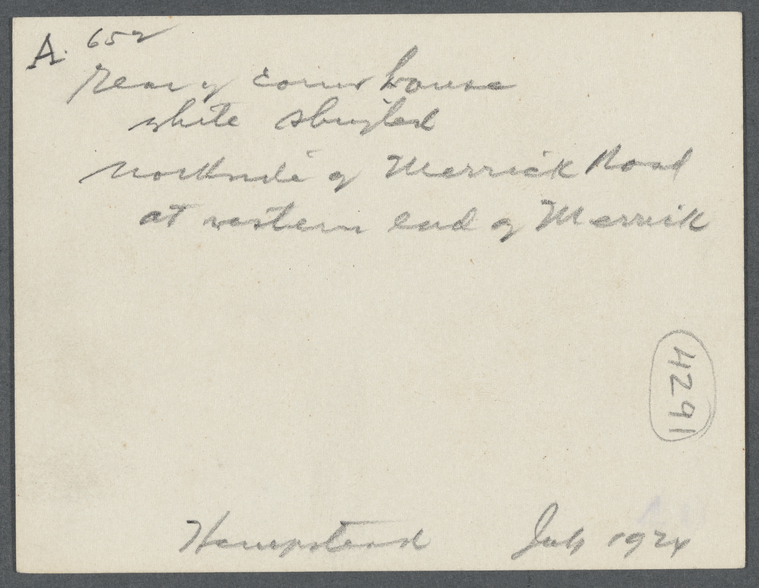 A. 652
Rear of corner house
white shingled
north side of Merrick Road
at western end of Merrick
4291
Hempstead July 1924